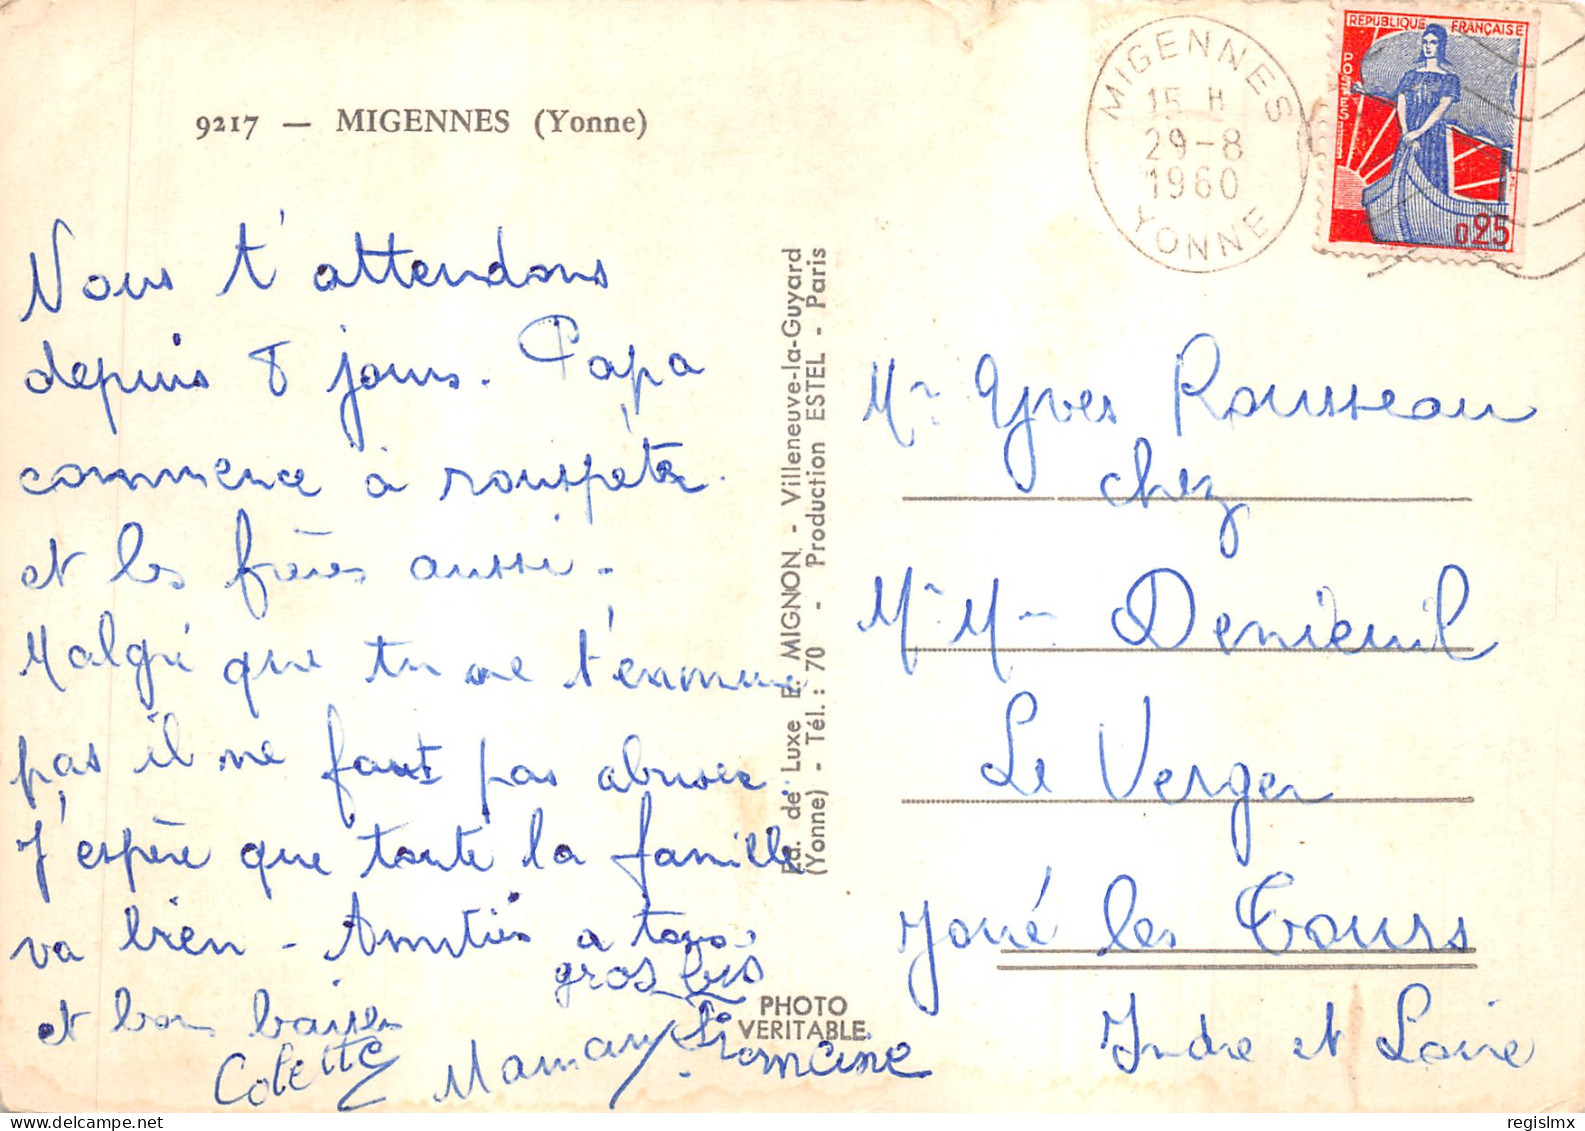 9217 — MIGENNES (Yonne)
Nous t'attendons
depuis 8 jours. Papa
commence à rouspéter
et les frères aussi -
Malgré que tu ne t'ennuie
pas il ne faut pas abuser.
J'espère que toute la famille
va bien - Amitiés a tous.
et bons baisers
gros bis
Colette
Maman
Francine
Ed. de Luxe E. MIGNON - Villeneuve-la-Guyard
(Yonne) - Tél. : 70 - Production ESTEL - Paris
PHOTO
VERITABLE
MIGENNES
15 H
29-8
1960
YONNE
REPUBLIQUE FRANÇAISE
POSTES
0,25
Mr Yves Rousseau
chez
Mr Mme Denieuil
Le Verger
Joué les Tours
Indre et Loire
regislmx